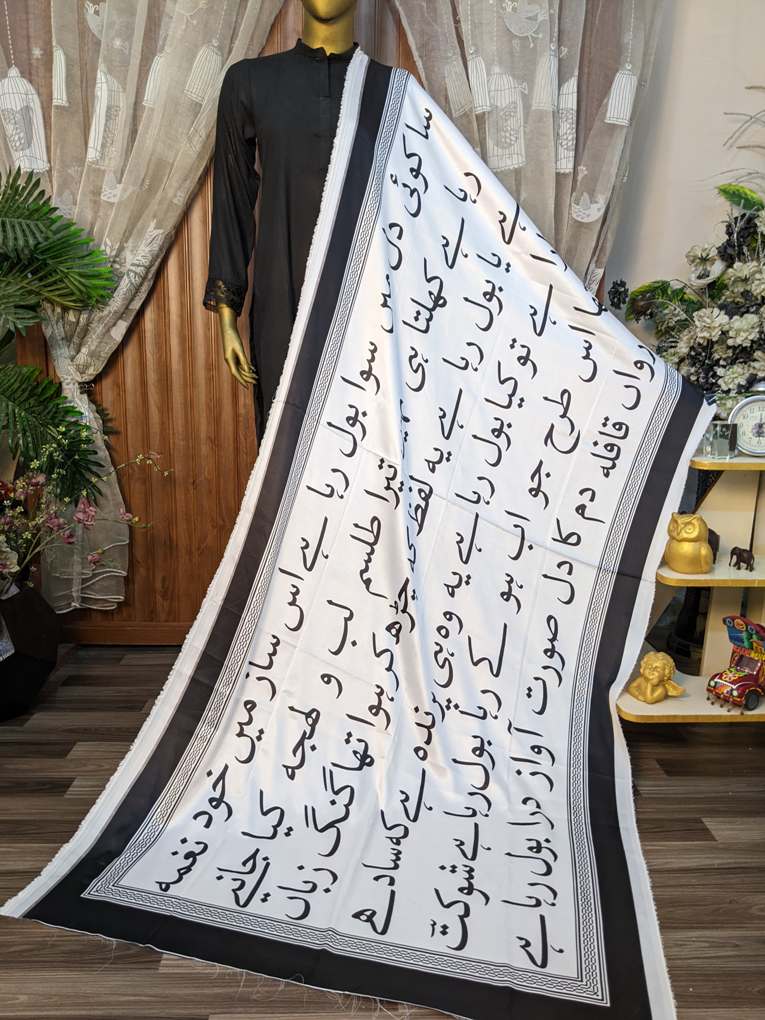 سا کوئی دل میں سوا بول رہا ہے اس ساز میں خود نغمہ
رہا ہے کھلتا ہی تیرا طلسم لب و لہجہ کیا جانیے
ہے یا بول رہا ہے یہ لفظ چڑھ کر ہوا تھا گنگ زباں
ہے تو کیا بول رہا ہے یہ وہ ہی پرندہ ہے کہ سادھے
اس طرح جو اب ہو کے رہا بول رہا ہے شوکتؔ
رواں قافلہ دم کا دل صورت آواز درا بول رہا ہے